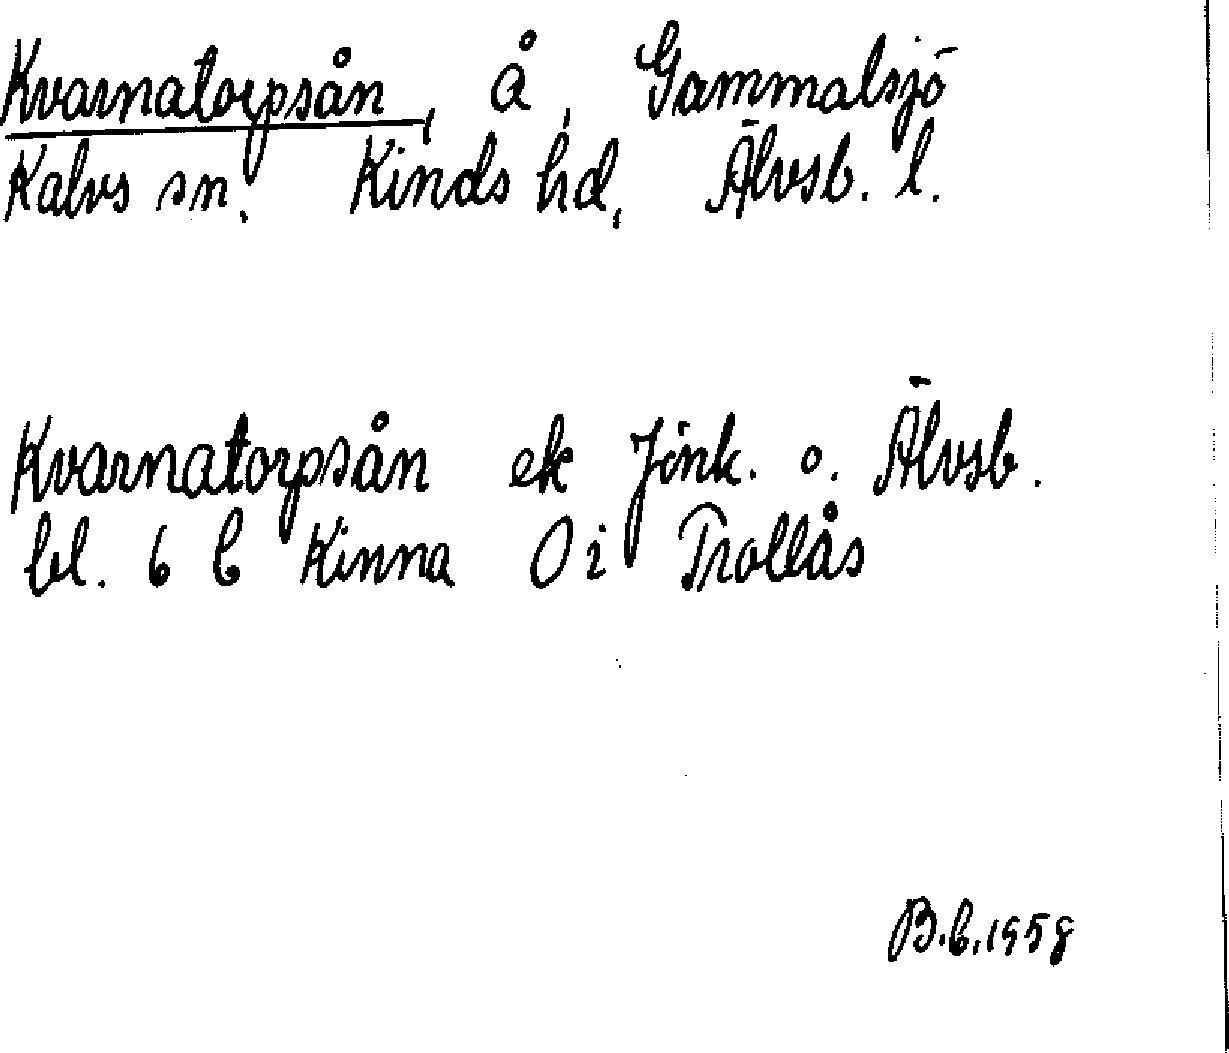 Kvarnatorpsån, å, Gammalsjö
Kalvs sn. Kinds hd, Älvsb. l.
Kvarnatorpsån ek Jönk. o. Älvsb.
bl. 6 b Kinna Ö i Trollås
B.b. 1958